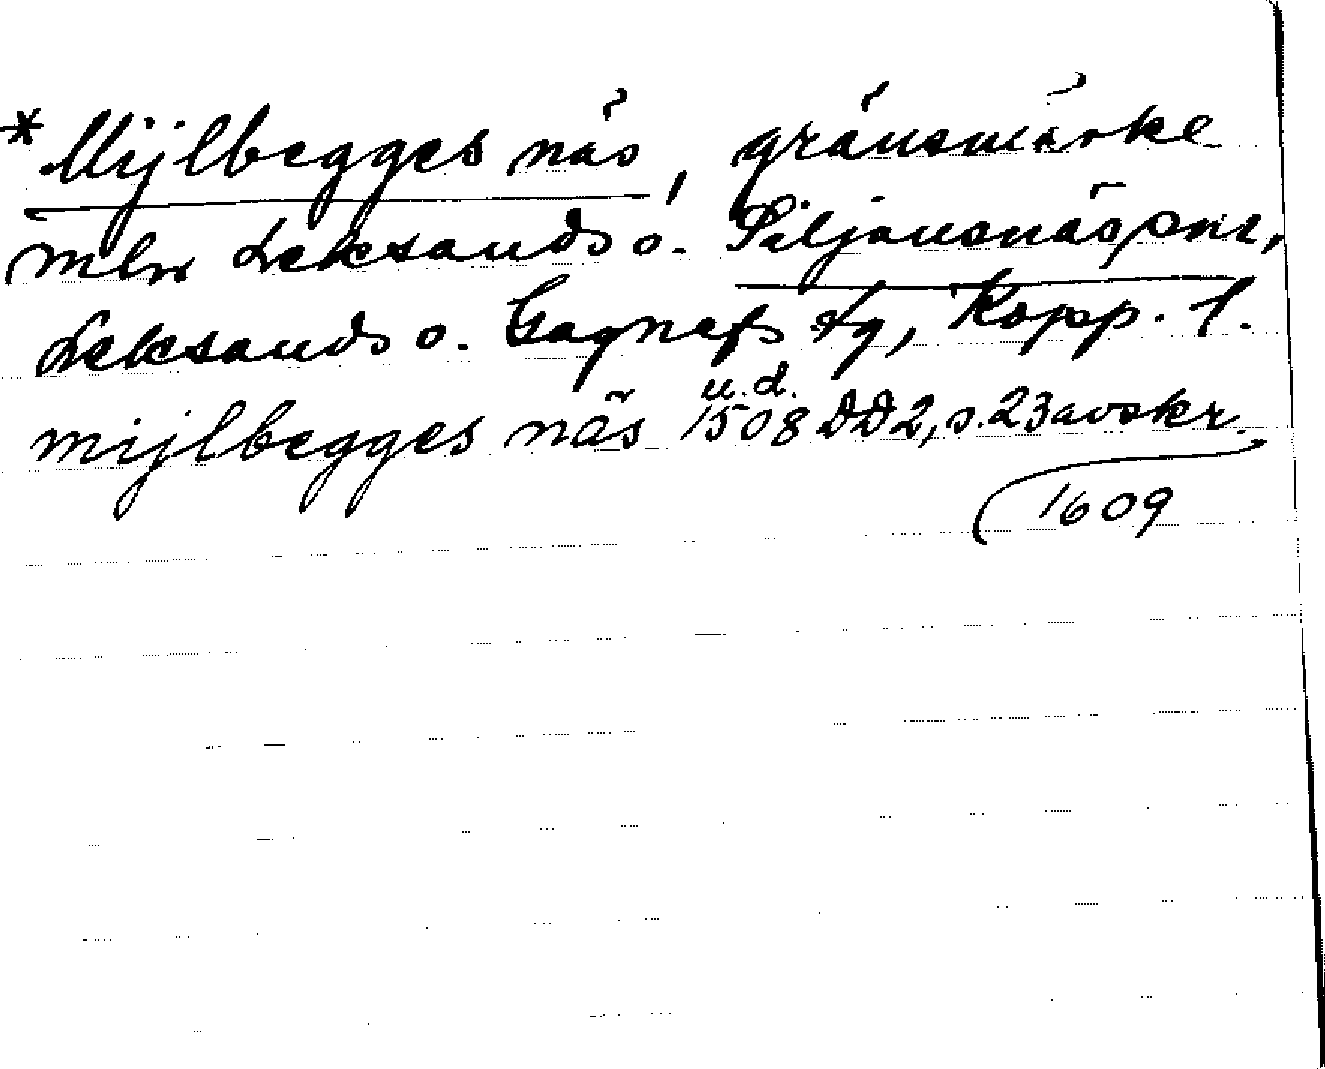 * Mijlbegges näs, gränsmärke
mln Leksands o. Siljansnäs snr,
Leksands o. Gagnefs tg, Kopp. l.
u.d.
mijlbegges näs 1508 DD2, s. 23 avskr.
1609